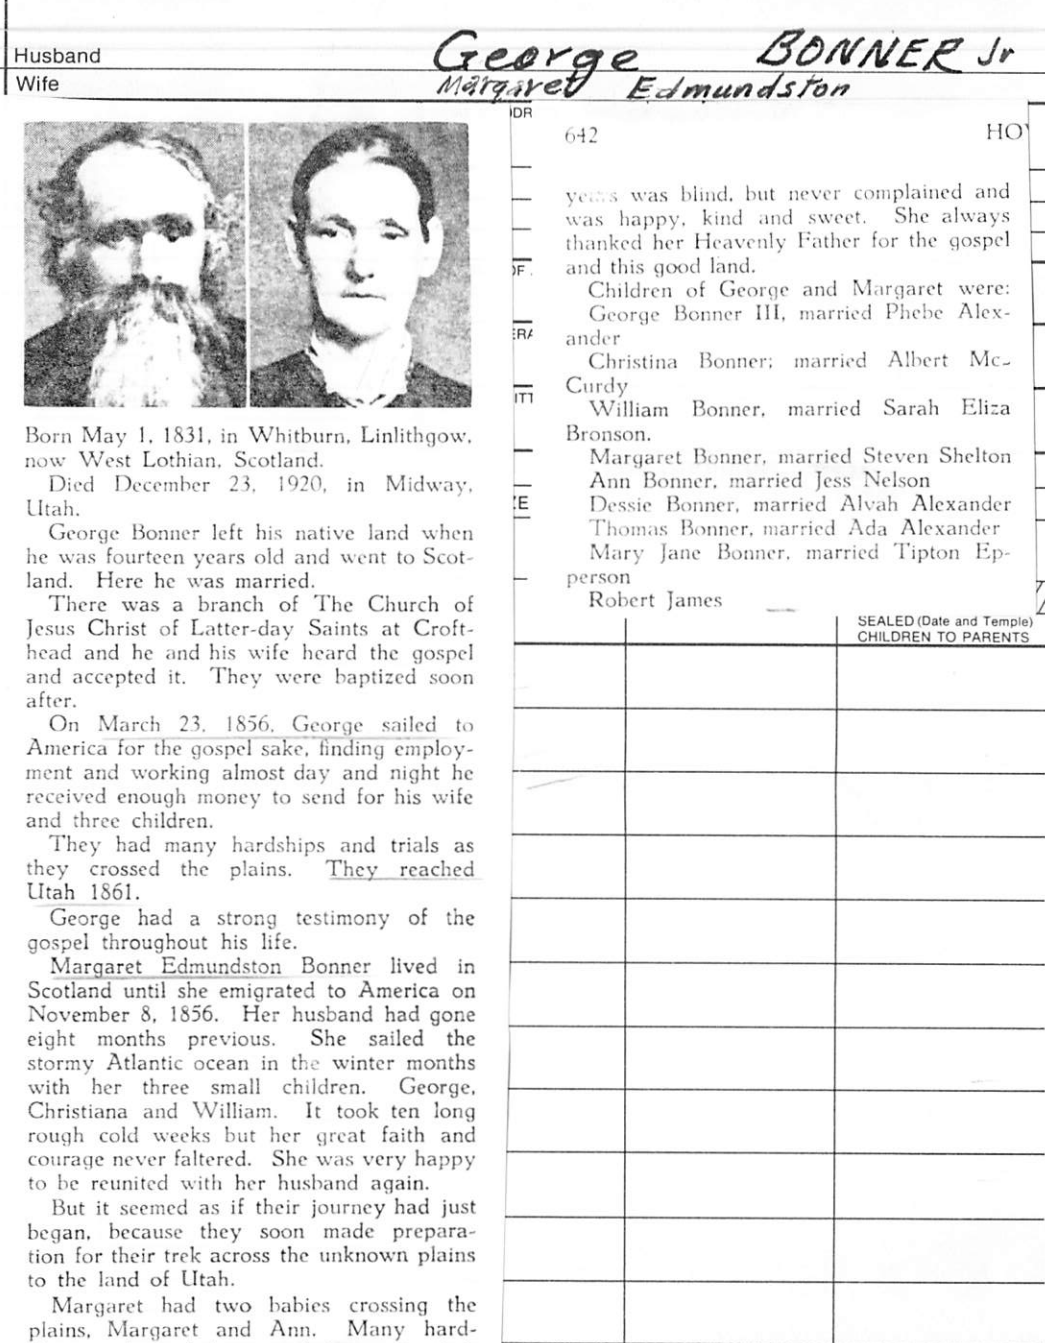 Husband George BONNER Jr
Wife Margaret Edmundston
Born May 1, 1831, in Whitburn, Linlithgow,
now West Lothian, Scotland.
Died December 23, 1920, in Midway,
Utah.
George Bonner left his native land when
he was fourteen years old and went to Scot-
land. Here he was married.
There was a branch of The Church of
Jesus Christ of Latter-day Saints at Croft-
head and he and his wife heard the gospel
and accepted it. They were baptized soon
after.
On March 23, 1856, George sailed to
America for the gospel sake, finding employ-
ment and working almost day and night he
received enough money to send for his wife
and three children.
They had many hardships and trials as
they crossed the plains. They reached
Utah 1861.
George had a strong testimony of the
gospel throughout his life.
Margaret Edmundston Bonner lived in
Scotland until she emigrated to America on
November 8, 1856. Her husband had gone
eight months previous. She sailed the
stormy Atlantic ocean in the winter months
with her three small children. George,
Christiana and William. It took ten long
rough cold weeks but her great faith and
courage never faltered. She was very happy
to be reunited with her husband again.
But it seemed as if their journey had just
began, because they soon made prepara-
tion for their trek across the unknown plains
to the land of Utah.
Margaret had two babies crossing the
plains, Margaret and Ann. Many hard-
DR
OF
ERA
ITT
E
642 HO
years was blind, but never complained and
was happy, kind and sweet. She always
thanked her Heavenly Father for the gospel
and this good land.
Children of George and Margaret were:
George Bonner III, married Phebe Alex-
ander
Christina Bonner; married Albert Mc-
Curdy
William Bonner, married Sarah Eliza
Bronson.
Margaret Bonner, married Steven Shelton
Ann Bonner, married Jess Nelson
Dessie Bonner, married Alvah Alexander
Thomas Bonner, married Ada Alexander
Mary Jane Bonner, married Tipton Ep-
person
Robert James
SEALED (Date and Temple)
CHILDREN TO PARENTS